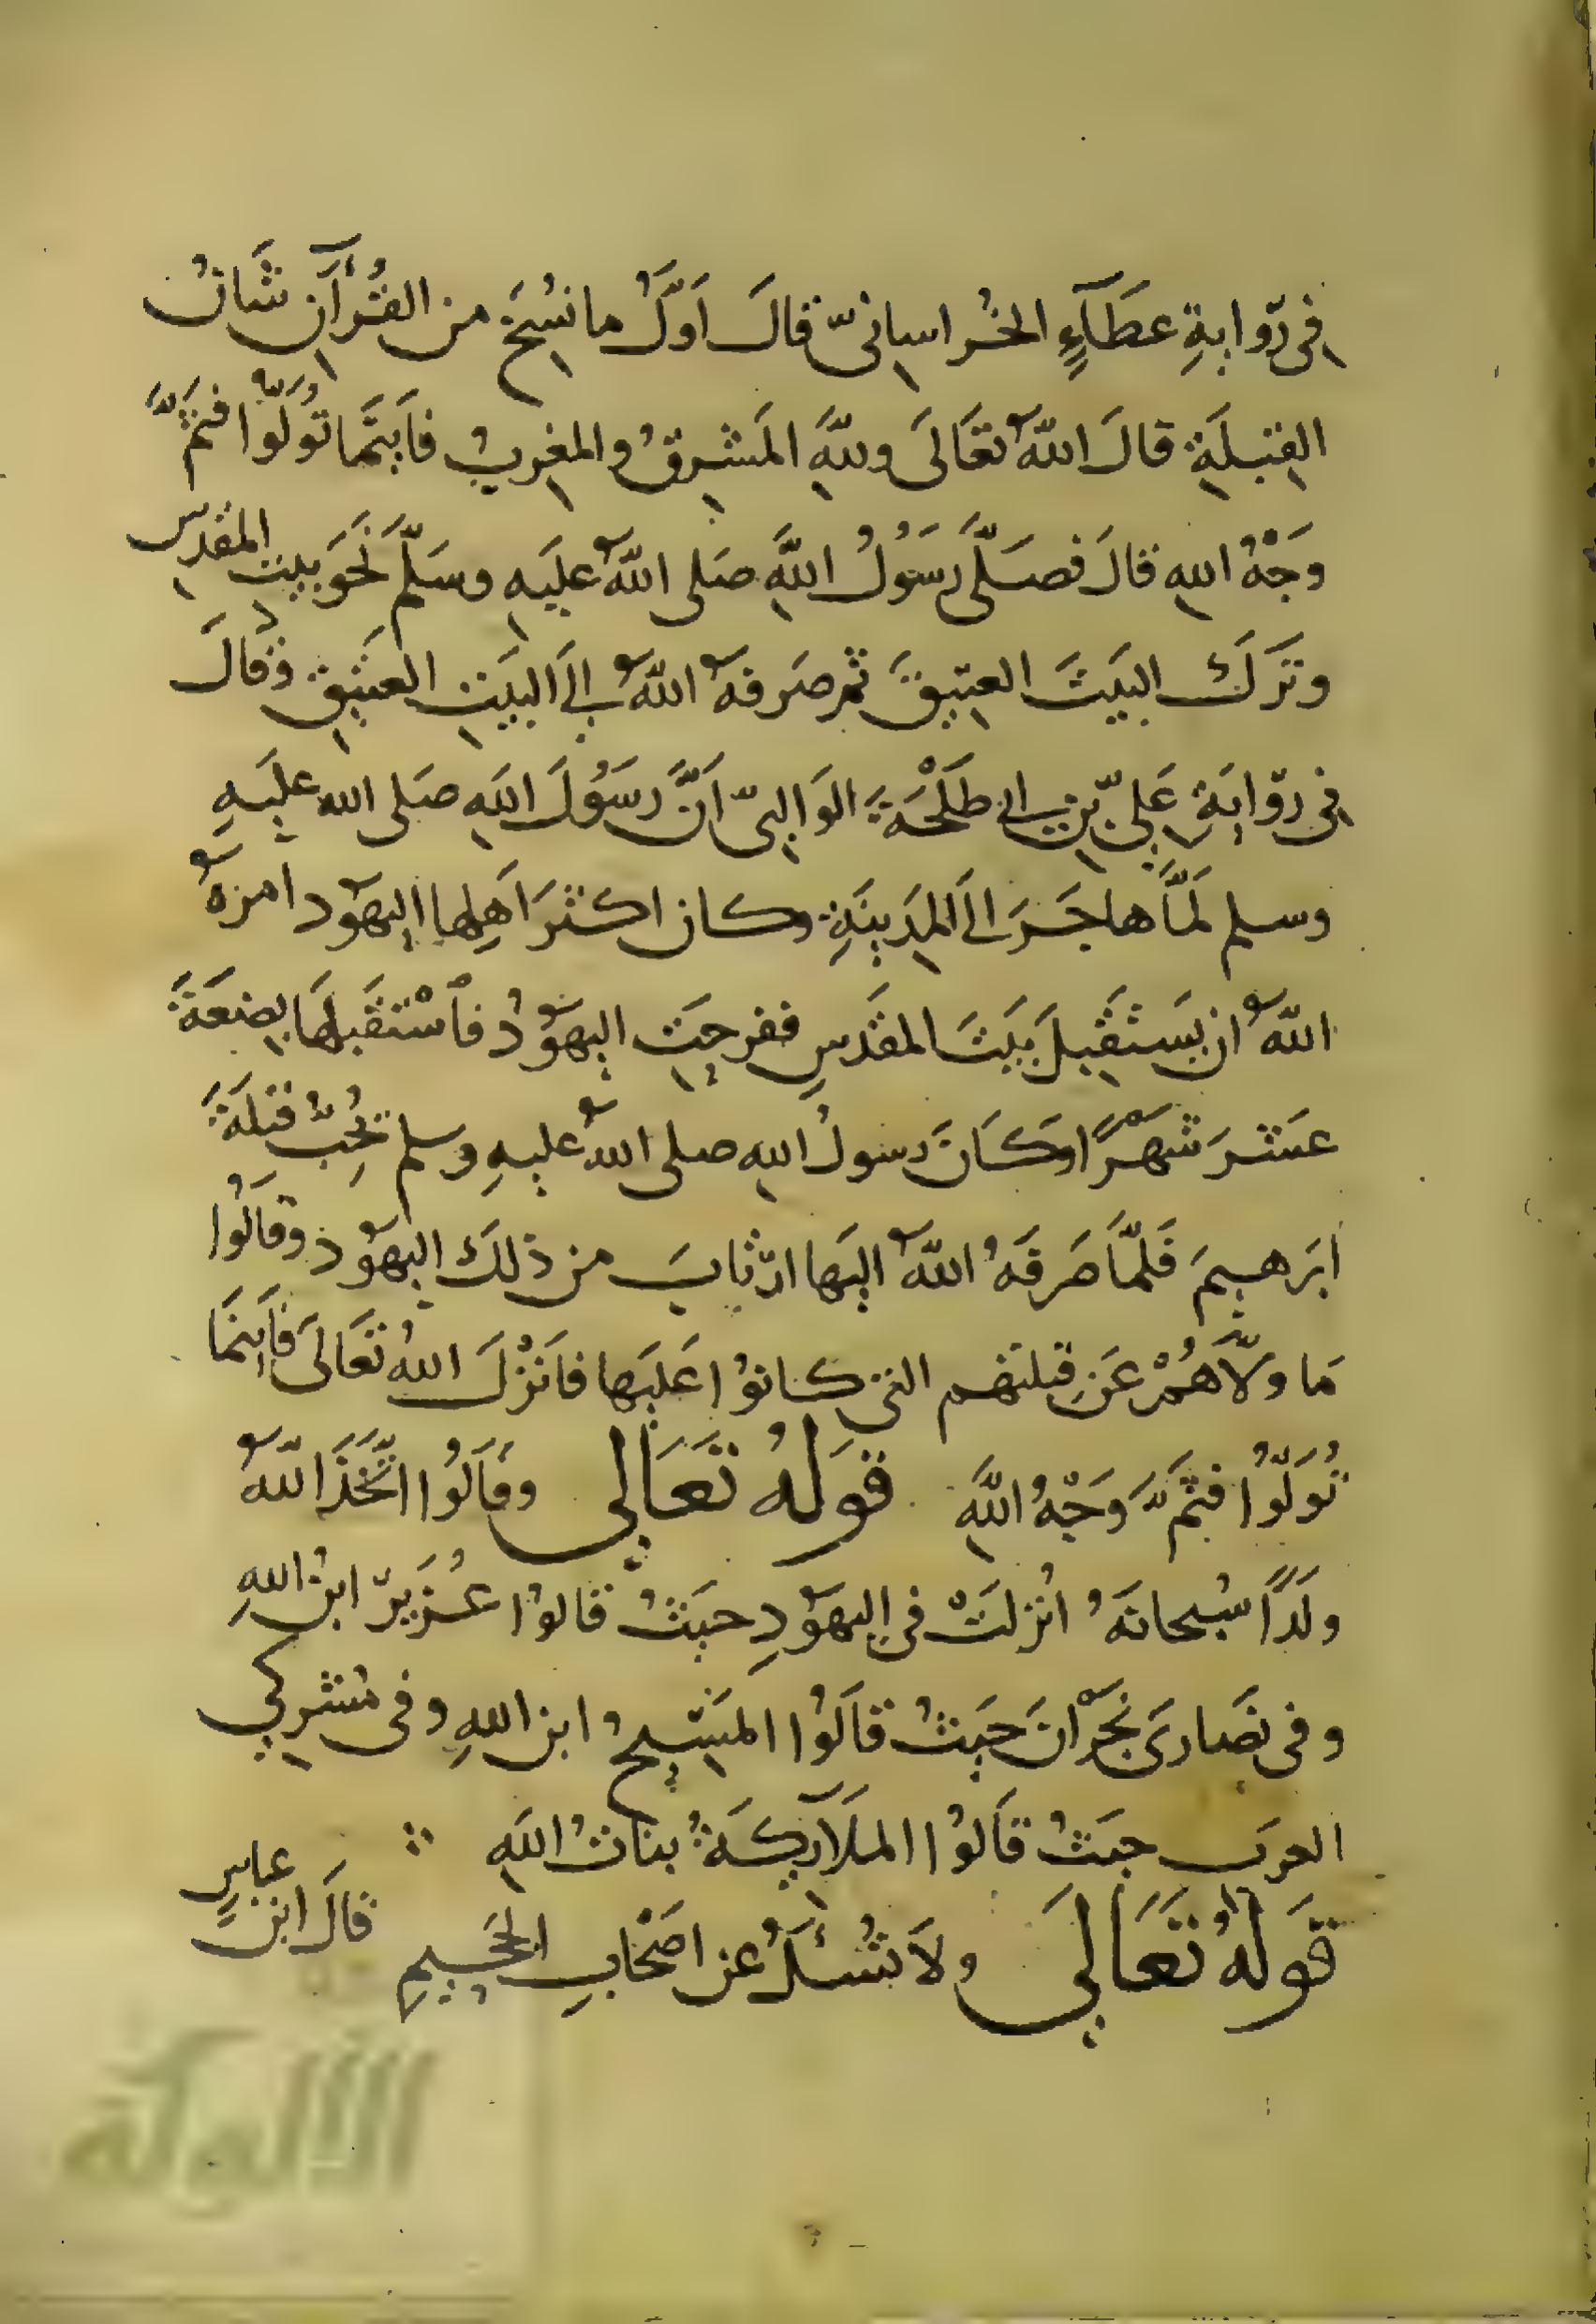 فى رّوايةِ عَطَآءٍ الخُراسانىّ قالَ اَوَّلُ ما نُسِخَ من القُرْآنِ شَانُ
القِبلَةِ قالَ اللّهُ تعَالَى وللّهِ المَشرِقُ والمغرِبُ فاَينَما تُوَلّوا فثَمَّ
وَجْهُ اللهِ قالَ فصَلَّى رسَوُلُ اللّهِ صَلى اللّهُ علَيهِ وسَلَّمَ نَحَو بيتِ المقدسِ
وتَرَكَ البَيتَ العتيقَ ثم صَرفهُ اللّهُ الَى البَيتِ العَتيقِ وَقالَ
فى روّايَةِ عَلِىّ بنِ ابى طلَحْةَ الوَالبىّ اَنَّ رسَوُلَ اللهِ صَلى الله علَيهِ
وسلم لَمَّا هاجَرَ الَى المدِينَةِ وكان اكثرَ اَهلِها اليهَود امرهُ
اللّهُ ان يَستَقبِلَ بَيتَ المقَدسِ ففرحتِ اليهَوُدُ فاسْتقبَلهَا بِضعَةَ
عَشرَ شَهرًا وَكَانَ رسولُ اللهِ صلى اللّهُ عليهِ وسلم يُحِبُّ قبلَةَ
ابَرهيمَ فَلمّا صَرفَهُ اللّهُ اليَها ارتابَ من ذلكَ اليهَوُد وقَالُوا
مَا ولّاهُمْ عَنِ قبلتهم التى كانوُا عَليَها فاَنْزلَ اللهُ تعَالَى فاَينَمَا
تُوَلّوُا فثَمَّ وَجْهُ اللّهِ قوَلهُ تعَالَى وقَالُوا اتّخَذَ اللّهُ
ولَدًا سُبحانهُ انُزلَتْ فى اليهَودِ حيَثُ قالوُا عُزَيرّ ابنُ اللهِ
وفى نصَارىَ نَجْرَانَ حيَثُ قاَلوُا المَسيحُ ابن اللهِ وفى مُشرِكي
العربَ حيَثُ قاَلوُا المَلَآئِكةُ بناتُ اللهِ
قوَلهُ تعَالَى ولَا تُسْئَلُ عن اصَحَابِ الجَحيمِ قالَ ابنُ عباسٍ
الألوكة